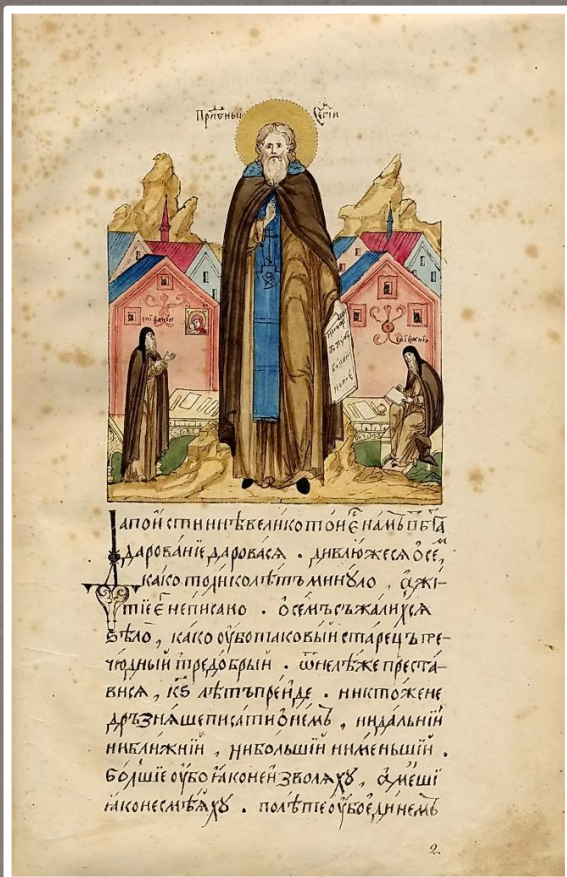 Прпⷣбныи Сергіи
епифаніе
епифаніе
Да поистиннѣ велико то и҆ є҆ намъ ѿ б҃га
дарованїе даровася . дивлю́жеся ѻ҆ се́мъ,
како толи́ко лѣтъ мину́ло , а҆жи-
тїе є҆ не писано . ѻ҆ се́мъ съжали́хся
ѕѣло̀ , како ᲂу҆́бо таковы́й ста́рецъ пре-
чю́дный предо́брый . ѿнелѣ́же преста-
вися , к҃ѕ лѣтъ пре́йде . никто́жене
дръзня́ше писа́ти ѻ҆ не́мъ , ни да́льнїи
ни бли́жнїи , ни бо́льшїи ни ме́ньшїи .
бо́лшїе ᲂу҆́бо ꙗ҆́ко не и҆зволя́ху , а҆ ме́ншїи
ꙗ҆́ко не смѣ́яху . по лѣ́те ᲂу҆́бо є҆ди́немъ
2.